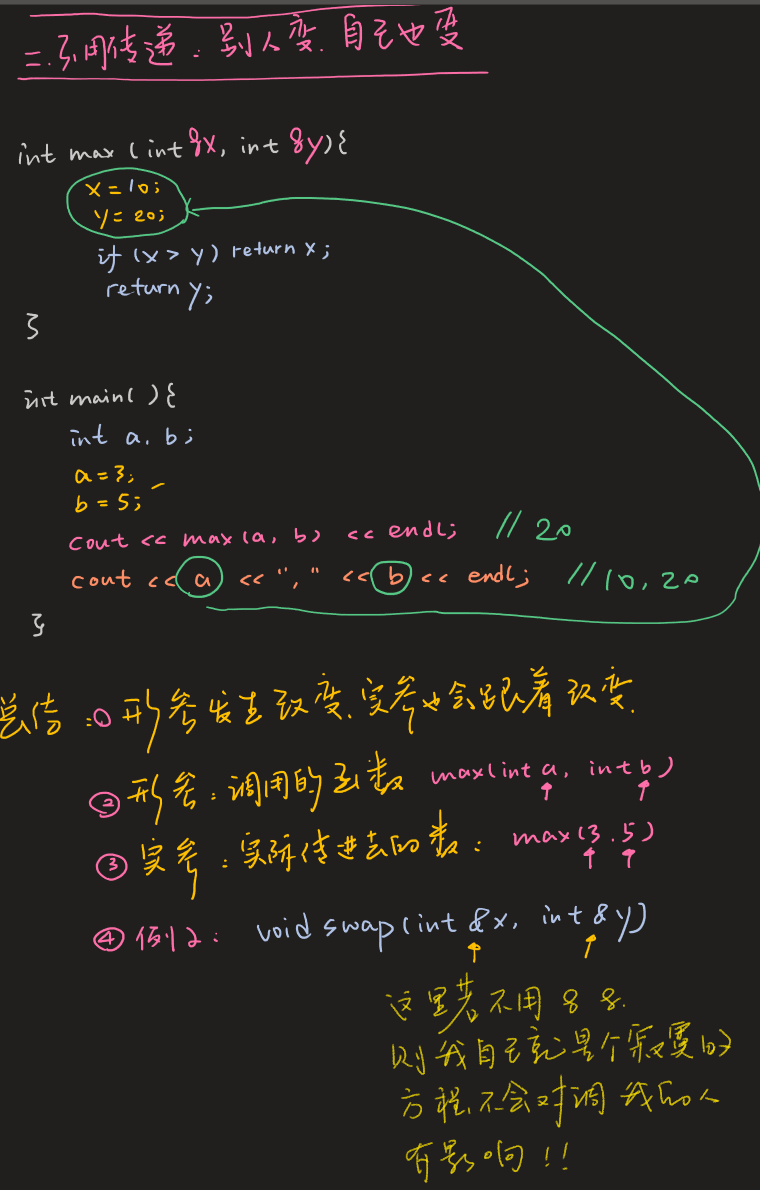 二.引用传递：别人变.自己也变
int max (int &x, int &y){
x = 10;
y = 20;
if (x > y) return x;
return y;
}
int main( ){
int a, b;
a = 3;
b = 5;
cout << max(a, b) << endl; // 20
cout << a << "," << b << endl; // 10, 20
}
总结：① 形参发生改变.实参也会跟着改变.
② 形参：调用的函数 max(int a, int b)
③ 实参：实际传进去的数：max(3.5)
④ 例2： void swap(int &x, int &y)
这里若不用 & &.
则我自己就是个寂寞的
方程.不会对调我的人
有影响!!